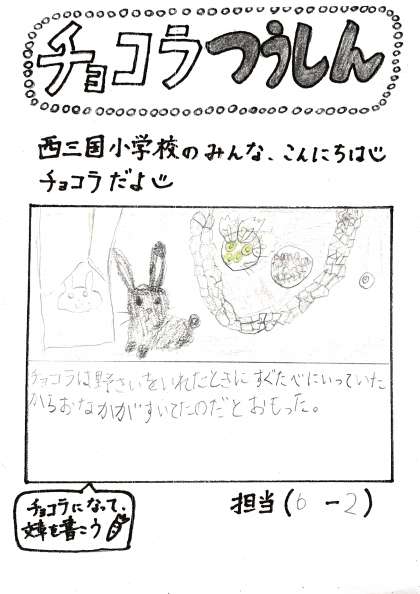 チョコラつうしん
西三国小学校のみんな、こんにちは
チョコラだよ
チョコラは野さいをいれたときにすぐたべにいっていた
からおなかがすいてたのだとおもった。
チョコラになって、
文章を書こう
担当(6-2)